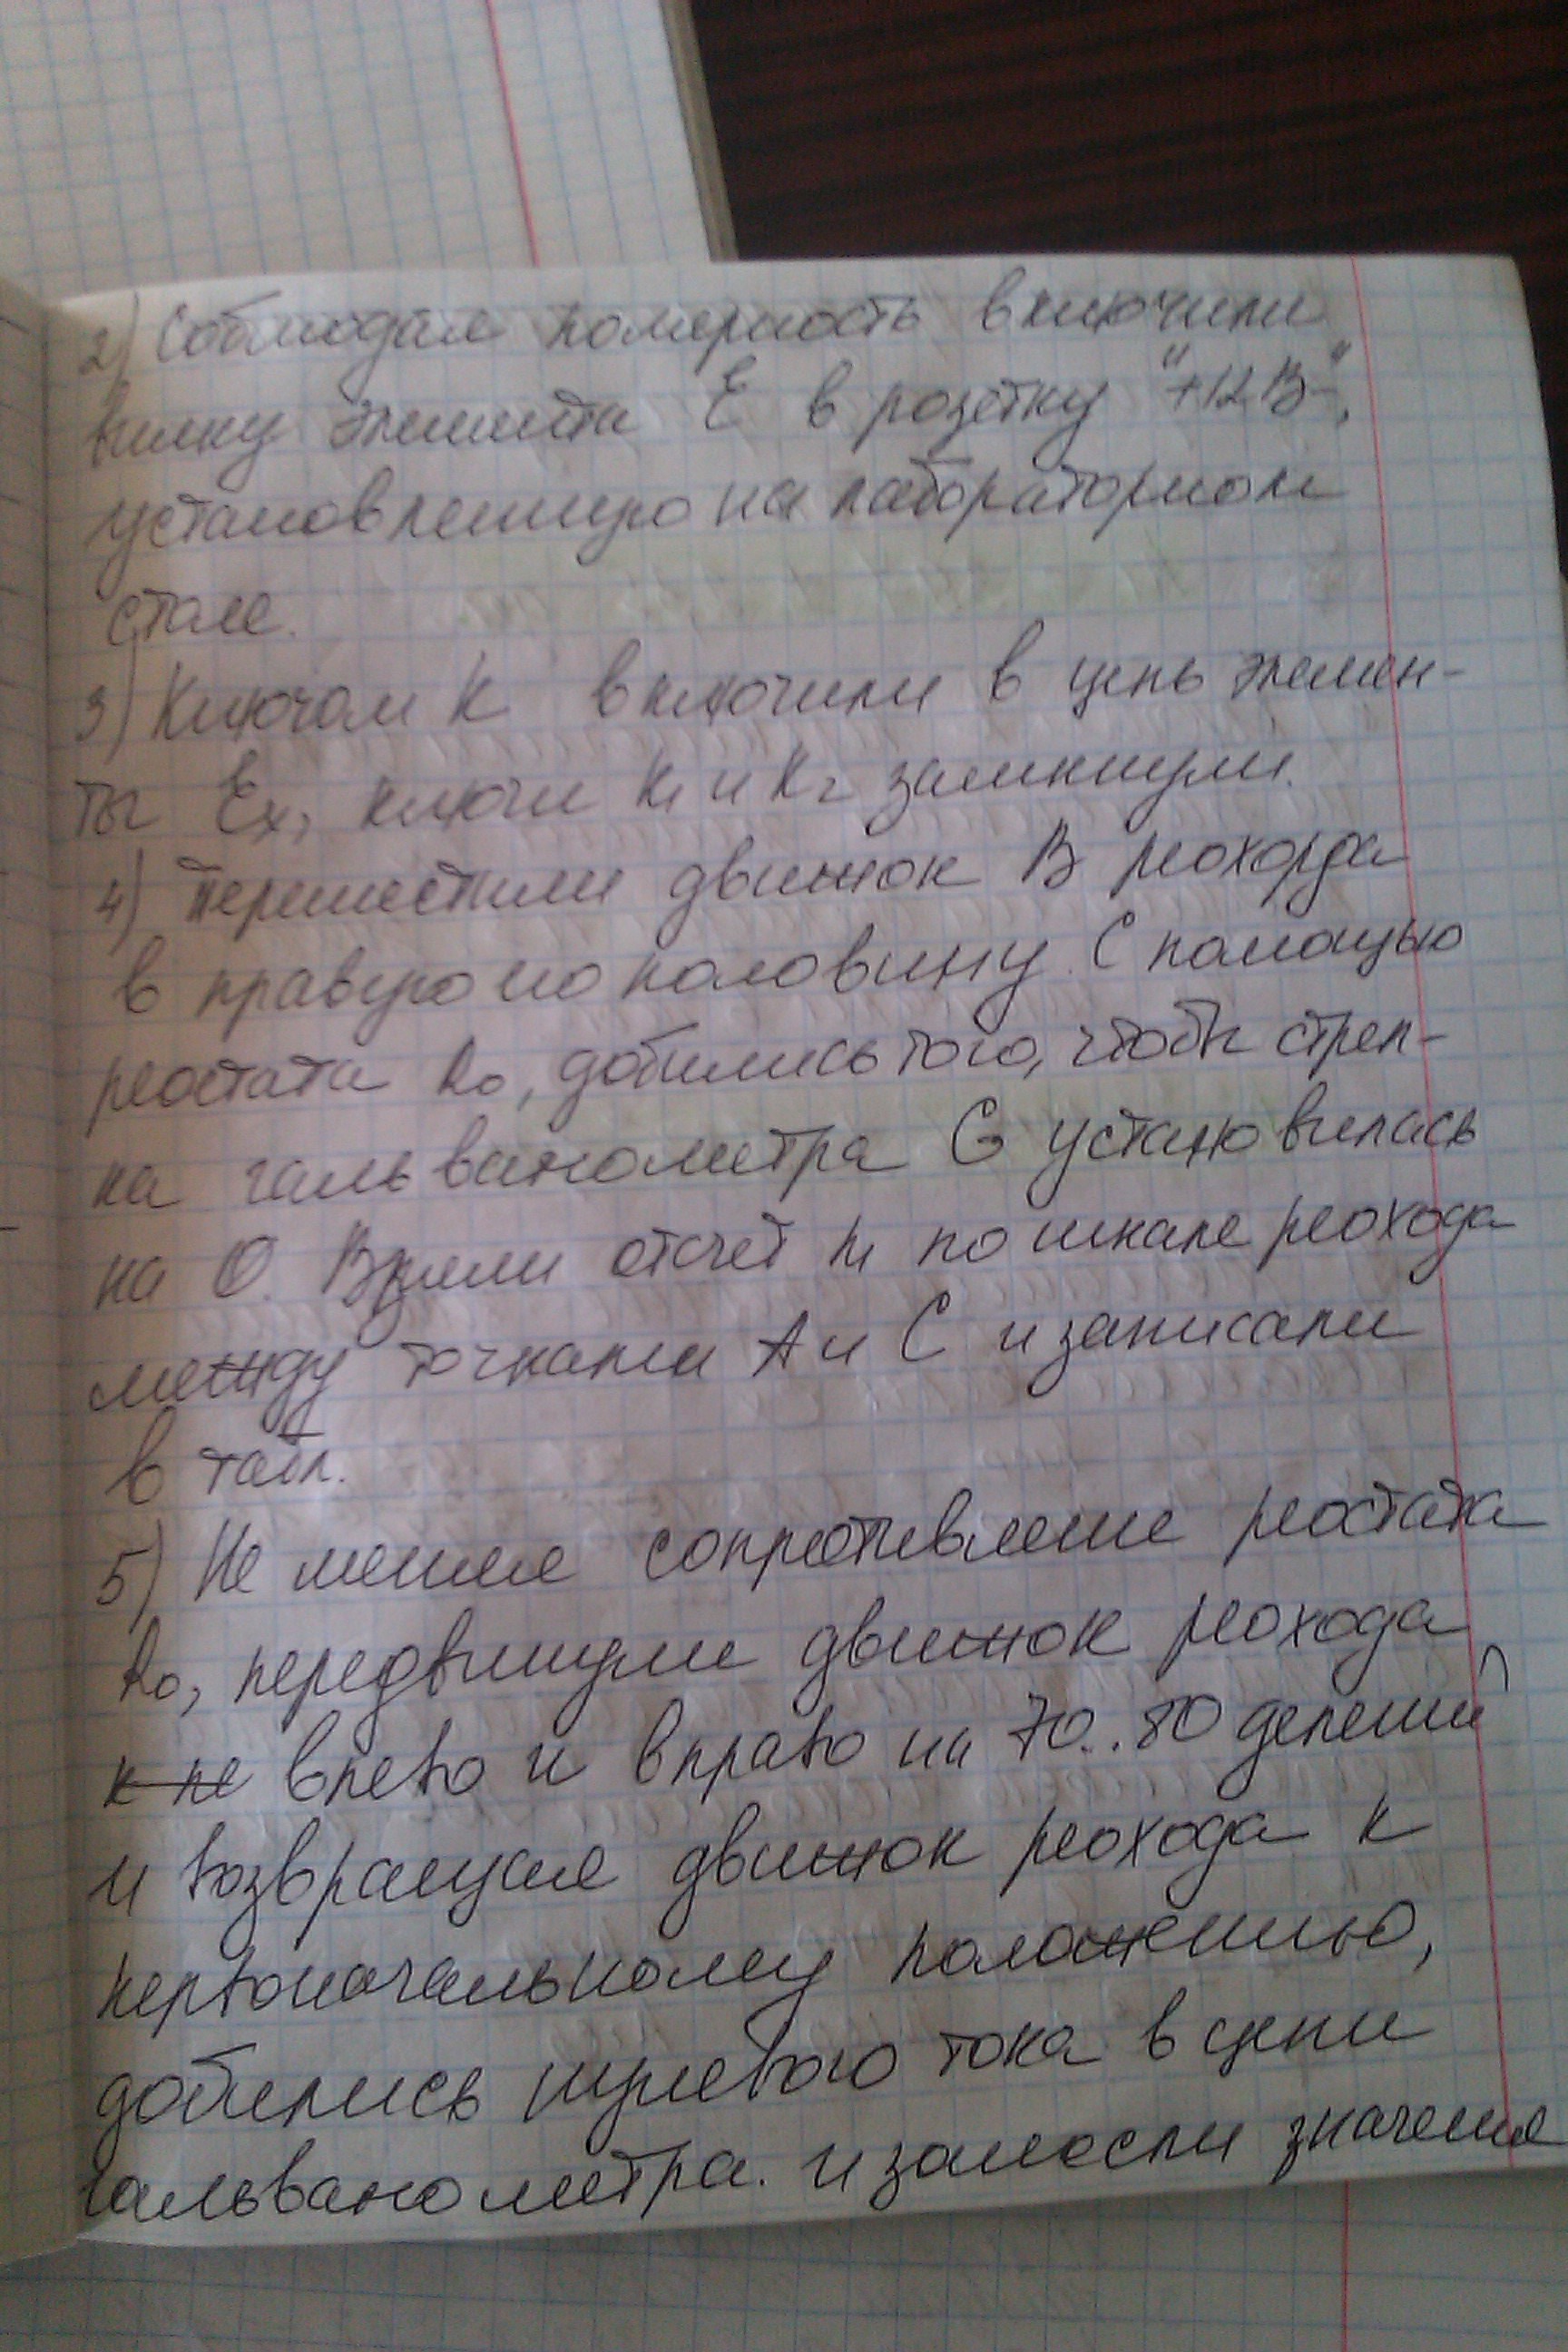 2) Соблюдая полярность включили
вилку элемента Е в розетку "+12В-",
установленную на лабораторном
столе.
3) Ключом К включили в цепь элемен-
ты Ех, ключи К1 и К2 замкнули.
4) Переместили движок В реохорда
в правую половину. С помощью
реостата R0, добились того, чтобы стрел-
ка гальванометра G установилась
на 0. Взяли отсчет n1 по шкале реохода
между точками А и С и записали
в табл.
5) Не меняя сопротивление реостата
R0, передвинули движок реохода
к ле влево и вправо на 70..80 делений
и возвращая движок реохода к
первоначальному положению,
добились нулевого тока в цепи
гальванометра. и занесли значения